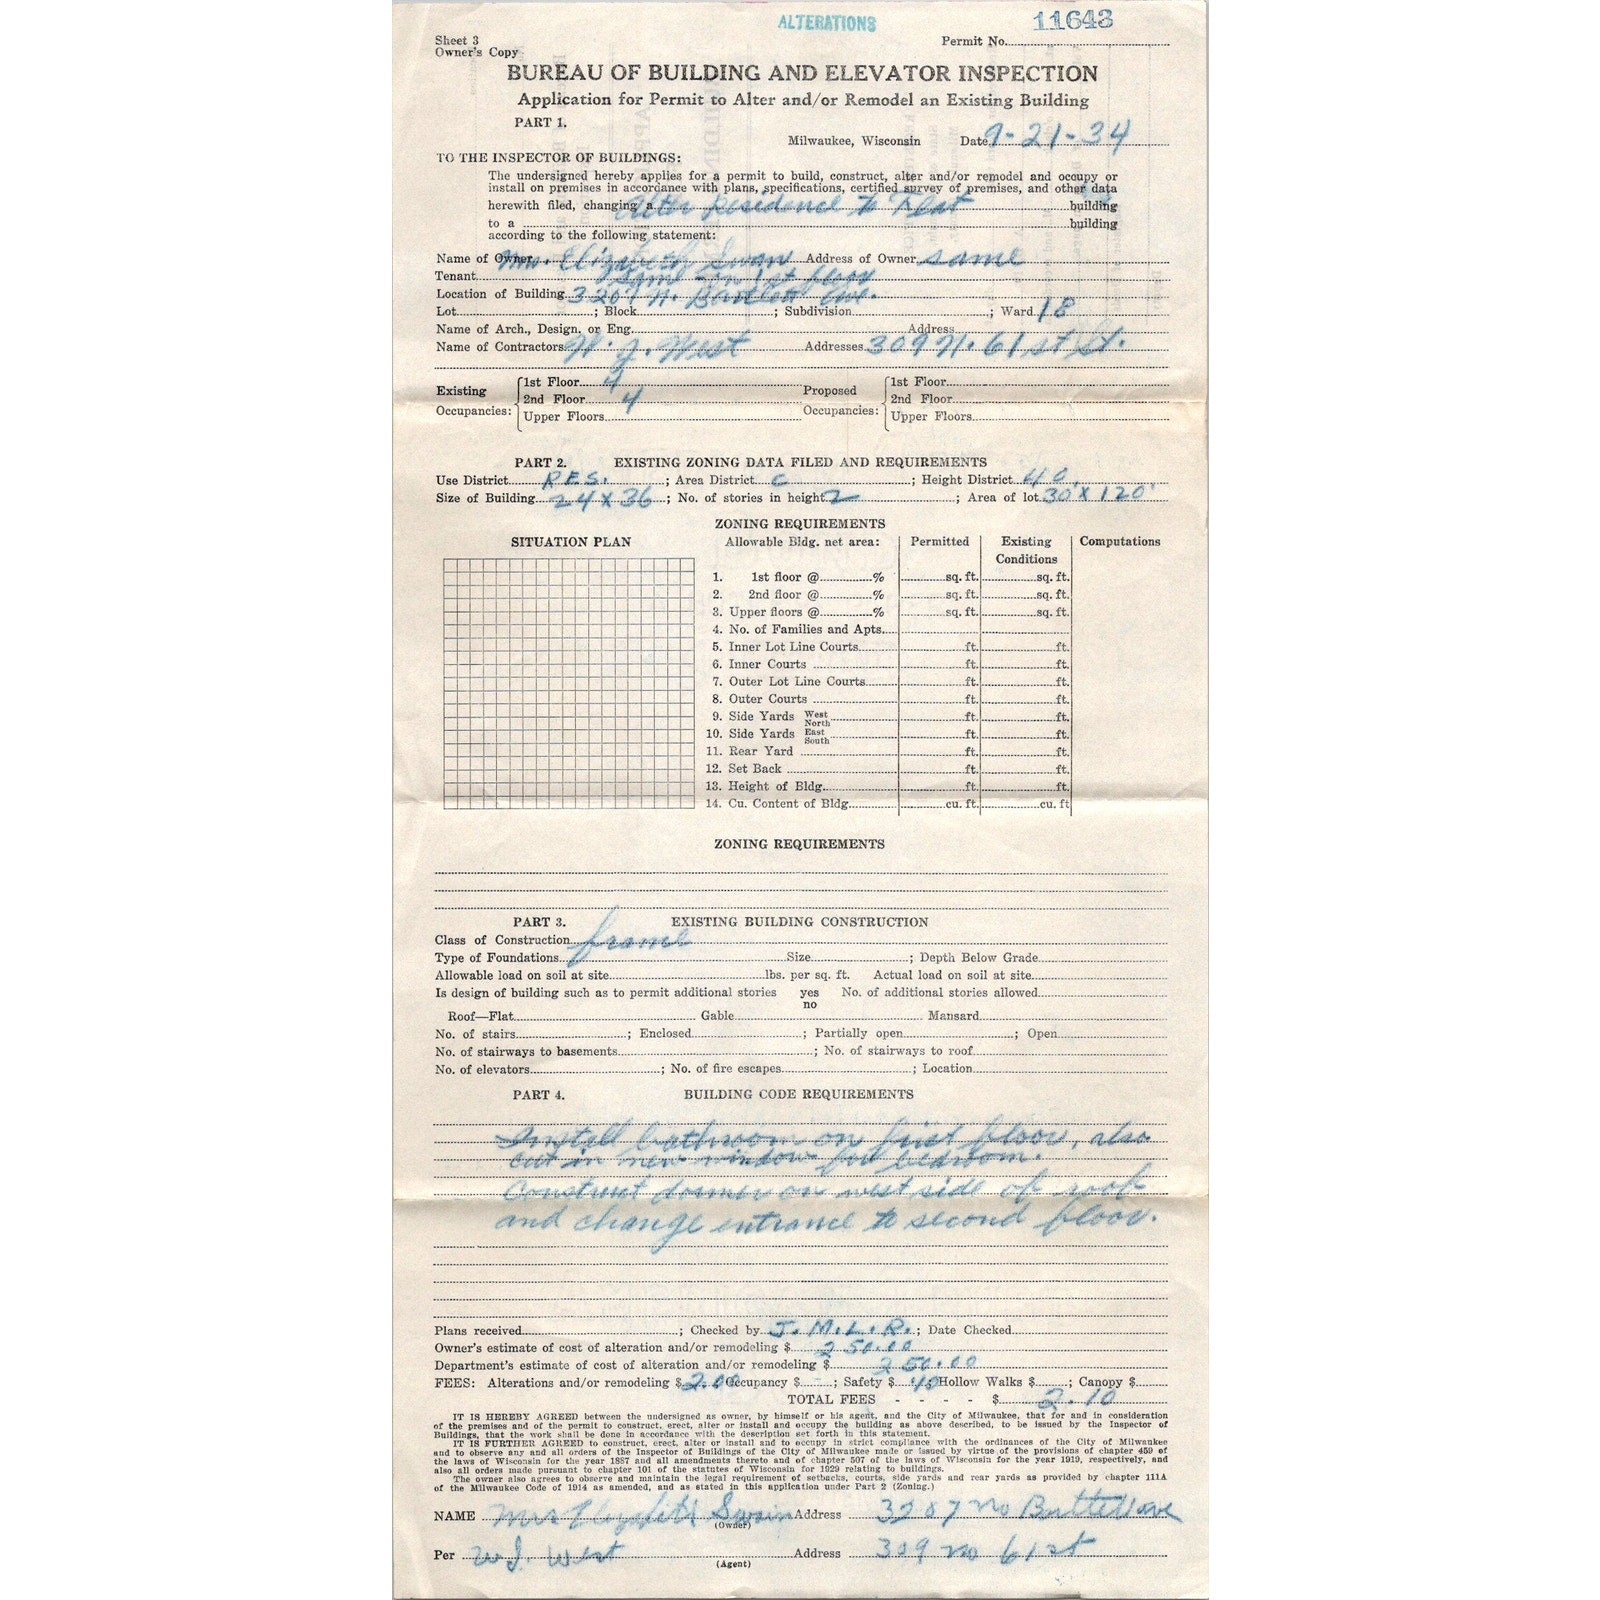 ALTERATIONS
11643
Sheet 3
Owner's Copy
Permit No.
BUREAU OF BUILDING AND ELEVATOR INSPECTION
Application for Permit to Alter and/or Remodel an Existing Building
PART 1.
Milwaukee, Wisconsin Date 9-21-34
TO THE INSPECTOR OF BUILDINGS:
The undersigned hereby applies for a permit to build, construct, alter and/or remodel and occupy or
install on premises in accordance with plans, specifications, certified survey of premises, and other data
herewith filed, changing a Alter Residence to Flat building
to a building
according to the following statement:
Name of Owner Mrs. Elizabeth Swan Address of Owner same
Tenant Same on 1st floor
Location of Building 3207 N. Bartlett Ave.
Lot ; Block ; Subdivision ; Ward 18
Name of Arch., Design. or Eng. Address
Name of Contractors W. J. West Addresses 309 N. 61st St.
Existing Occupancies: 1st Floor 4 Proposed Occupancies: 1st Floor
2nd Floor 4 2nd Floor
Upper Floors Upper Floors
PART 2. EXISTING ZONING DATA FILED AND REQUIREMENTS
Use District RES. ; Area District C ; Height District 40
Size of Building 24 x 36 ; No. of stories in height 2 ; Area of lot 30' x 120'
ZONING REQUIREMENTS
SITUATION PLAN Allowable Bldg. net area: Permitted Existing Conditions Computations
1. 1st floor @ % sq. ft. sq. ft.
2. 2nd floor @ % sq. ft. sq. ft.
3. Upper floors @ % sq. ft. sq. ft.
4. No. of Families and Apts.
5. Inner Lot Line Courts ft. ft.
6. Inner Courts ft. ft.
7. Outer Lot Line Courts ft. ft.
8. Outer Courts ft. ft.
9. Side Yards West North ft. ft.
10. Side Yards East South ft. ft.
11. Rear Yard ft. ft.
12. Set Back ft. ft.
13. Height of Bldg. ft. ft.
14. Cu. Content of Bldg. cu. ft. cu. ft
ZONING REQUIREMENTS
PART 3. EXISTING BUILDING CONSTRUCTION
Class of Construction frame
Type of Foundations Size ; Depth Below Grade
Allowable load on soil at site lbs. per sq. ft. Actual load on soil at site
Is design of building such as to permit additional stories yes no No. of additional stories allowed
Roof—Flat Gable Mansard
No. of stairs ; Enclosed ; Partially open ; Open
No. of stairways to basements ; No. of stairways to roof
No. of elevators ; No. of fire escapes ; Location
PART 4. BUILDING CODE REQUIREMENTS
Install bathroom on first floor, also
cut in new window for bedroom.
Construct dormer on west side of roof
and change entrance to second floor.
Plans received ; Checked by J. M. L. R. ; Date Checked
Owner's estimate of cost of alteration and/or remodeling $ 250.00
Department's estimate of cost of alteration and/or remodeling $ 250.00
FEES: Alterations and/or remodeling $ 2.00 Occupancy $ ; Safety $ .10 ; Hollow Walks $ ; Canopy $
TOTAL FEES - - - - $ 2.10
IT IS HEREBY AGREED between the undersigned as owner, by himself or his agent, and the City of Milwaukee, that for and in consideration
of the premises and of the permit to construct, erect, alter or install and occupy the building as above described, to be issued by the Inspector of
Buildings, that the work shall be done in accordance with the description set forth in this statement.
IT IS FURTHER AGREED to construct, erect, alter or install and to occupy in strict compliance with the ordinances of the City of Milwaukee
and to observe any and all orders of the Inspector of Buildings of the City of Milwaukee made or issued by virtue of the provisions of chapter 459 of
the laws of Wisconsin for the year 1887 and all amendments thereto and of chapter 507 of the laws of Wisconsin for the year 1919, respectively, and
also all orders made pursuant to chapter 101 of the statutes of Wisconsin for 1929 relating to buildings.
The owner also agrees to observe and maintain the legal requirement of setbacks, courts, side yards and rear yards as provided by chapter 111A
of the Milwaukee Code of 1914 as amended, and as stated in this application under Part 2 (Zoning.)
NAME Mrs Address 3207 no
(Owner)
Per W. J. West Address 309 no 61st
(Agent)